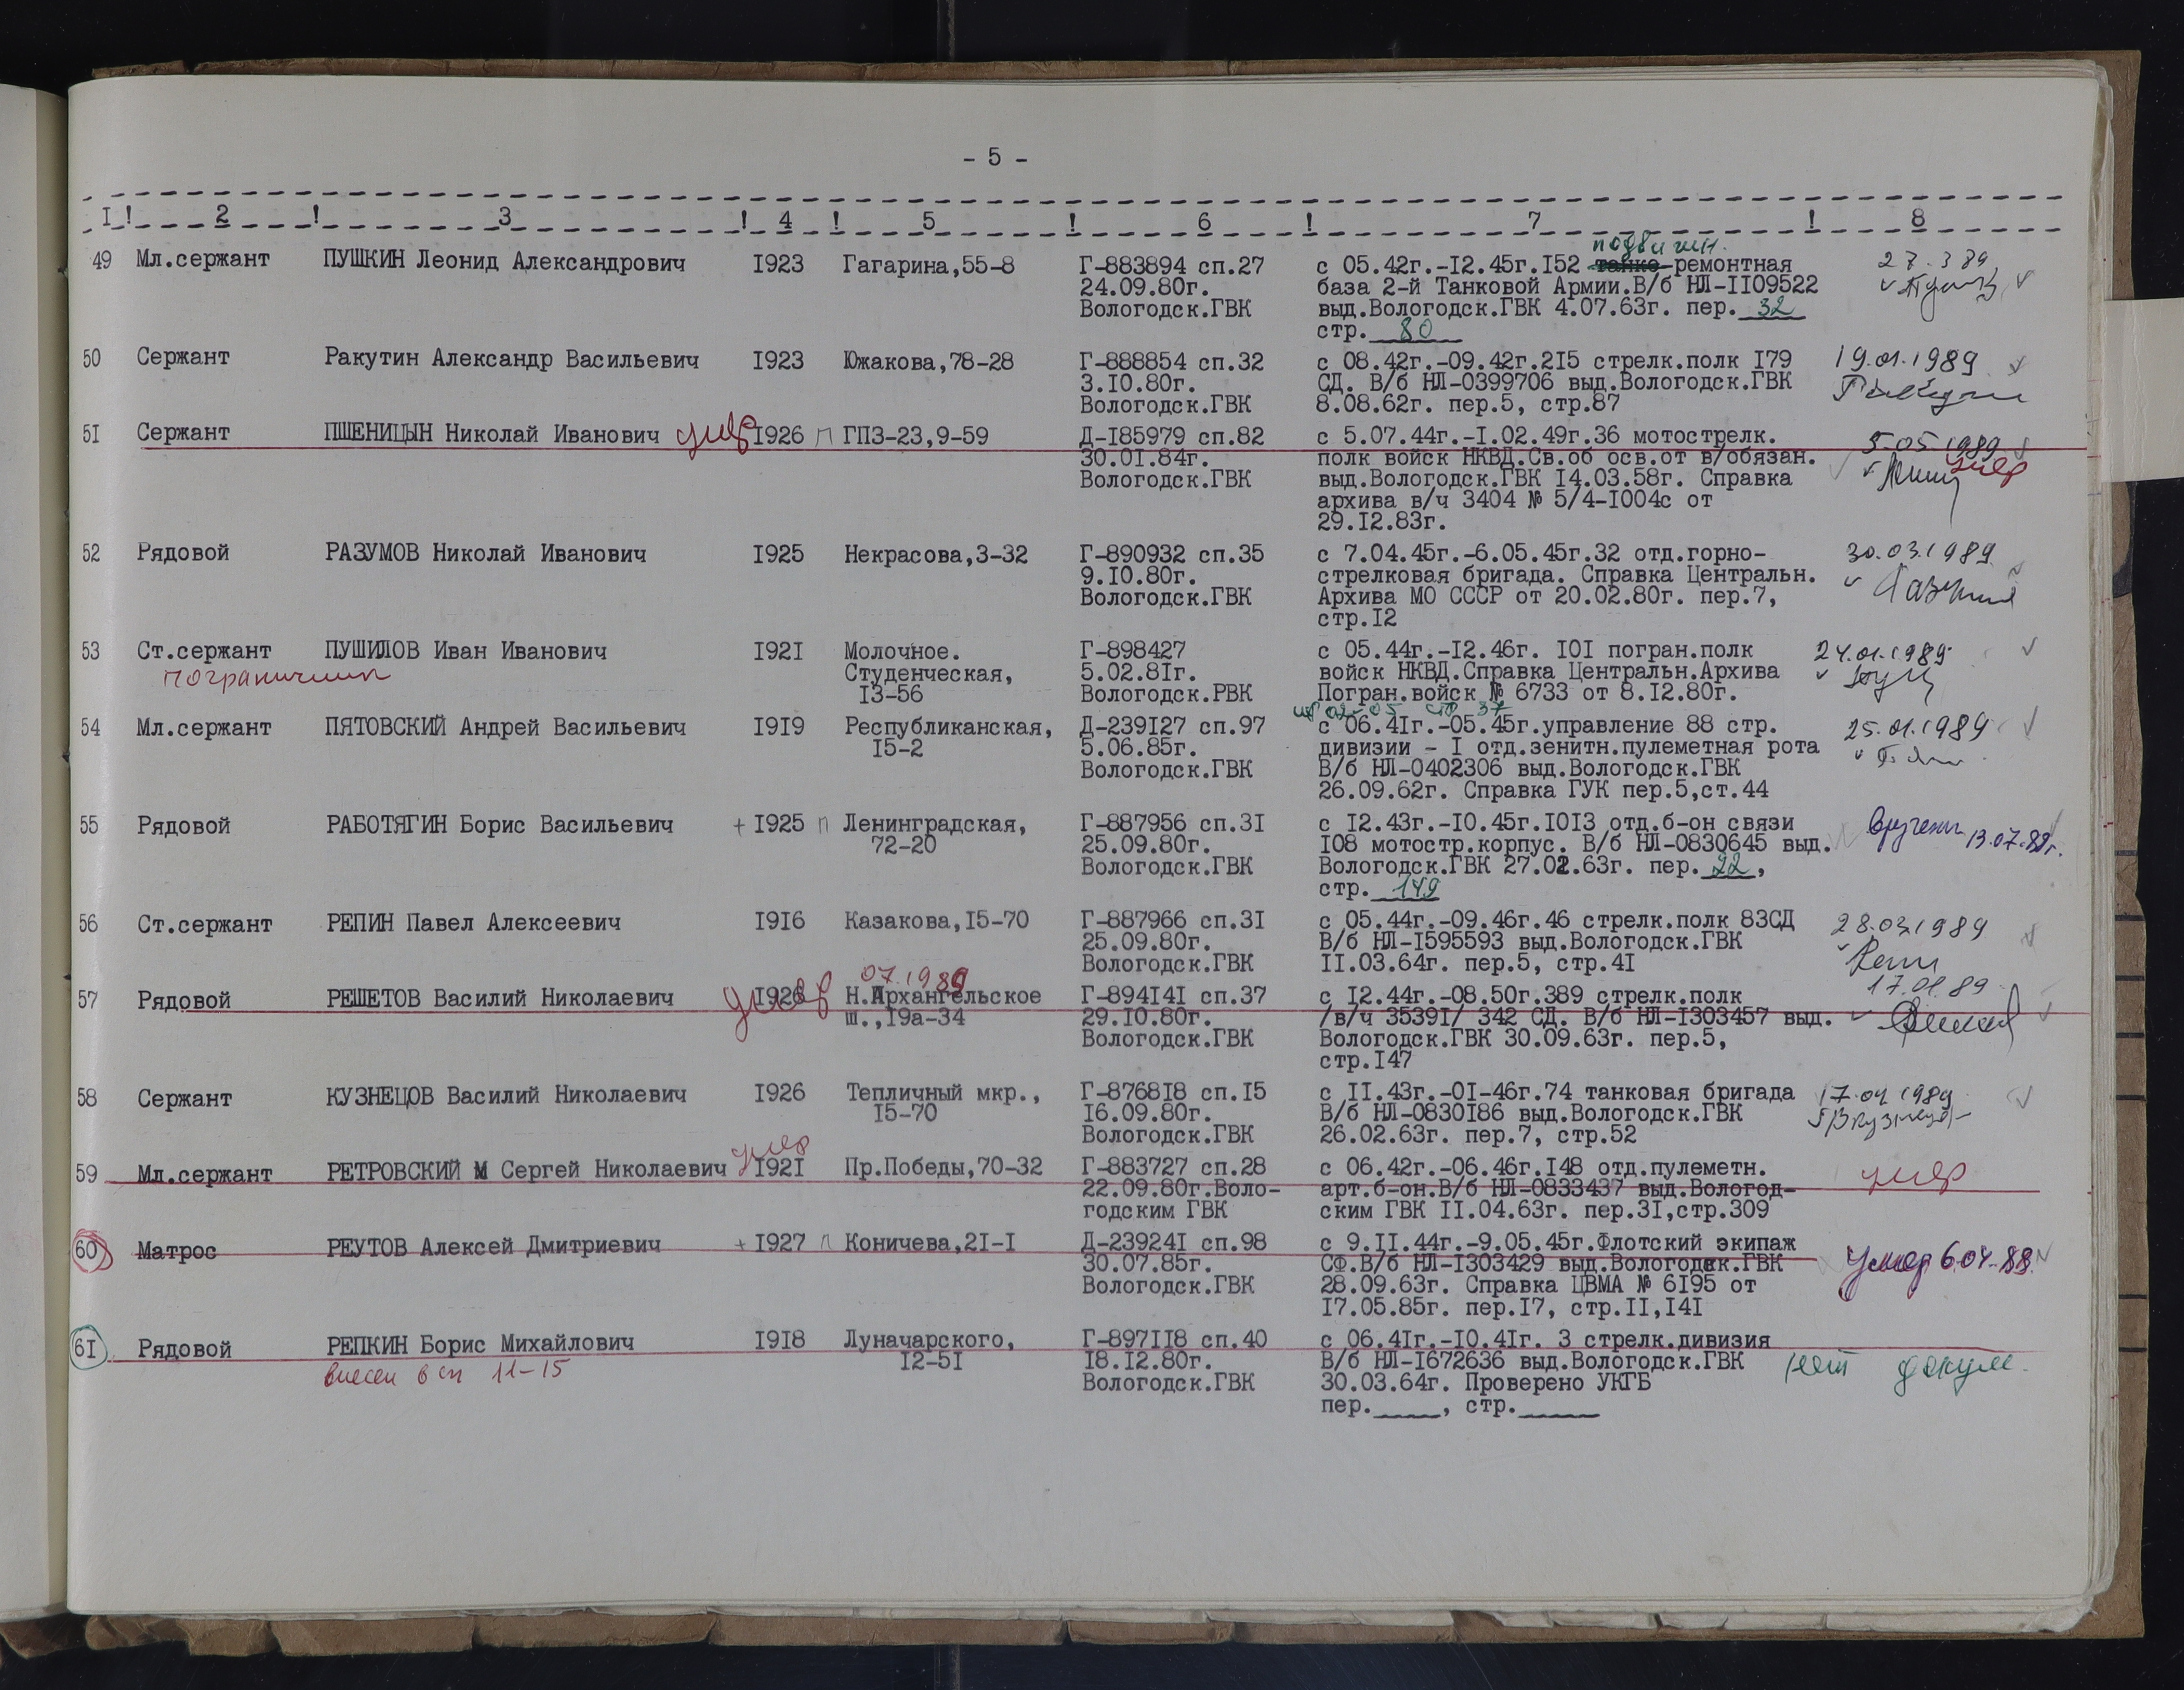 - 5 -
I ! 2 ! 3 ! 4 ! 5 ! 6 ! 7 ! 8
49 Мл.сержант ПУШКИН Леонид Александрович I923 Гагарина,55-8 Г-883894 сп.27 с 05.42г.-I2.45г.I52 танко-ремонтная 27.3 89
подвижн.
24.09.80г. база 2-й Танковой Армии.В/б НЛ-II09522
Вологодск.ГВК выд.Вологодск.ГВК 4.07.63г. пер. 32
стр. 80
50 Сержант Ракутин Александр Васильевич I923 Южакова,78-28 Г-888854 сп.32 с 08.42г.-09.42г.2I5 стрелк.полк I79 19.01.1989
3.I0.80г. СД. В/б НЛ-0399706 выд.Вологодск.ГВК
Вологодск.ГВК 8.08.62г. пер.5, стр.87
5I Сержант ПШЕНИЦЫН Николай Иванович умер I926 п ГПЗ-23,9-59 Д-I85979 сп.82 с 5.07.44г.-I.02.49г.36 мотострелк. 5.05.1989
30.0I.84г. полк войск НКВД.Св.об осв.от в/обязан. умер
Вологодск.ГВК выд.Вологодск.ГВК I4.03.58г. Справка
архива в/ч 3404 № 5/4-I004с от
29.I2.83г.
52 Рядовой РАЗУМОВ Николай Иванович I925 Некрасова,3-32 Г-890932 сп.35 с 7.04.45г.-6.05.45г.32 отд.горно- 30.03.1989
9.I0.80г. стрелковая бригада. Справка Центральн.
Вологодск.ГВК Архива МО СССР от 20.02.80г. пер.7,
стр.I2
53 Ст.сержант ПУШИЛОВ Иван Иванович I92I Молочное. Г-898427 с 05.44г.-I2.46г. I0I погран.полк 24.01.1989
пограничник Студенческая, 5.02.8Iг. войск НКВД.Справка Центральн.Архива
I3-56 Вологодск.РВК Погран.войск № 6733 от 8.I2.80г.
стр 37
54 Мл.сержант ПЯТОВСКИЙ Андрей Васильевич I9I9 Республиканская, Д-239I27 сп.97 с 06.4Iг.-05.45г.управление 88 стр. 25.01.1989
I5-2 5.06.85г. дивизии - I отд.зенитн.пулеметная рота
Вологодск.ГВК В/б НЛ-0402306 выд.Вологодск.ГВК
26.09.62г. Справка ГУК пер.5,ст.44
55 Рядовой РАБОТЯГИН Борис Васильевич + I925 п Ленинградская, Г-887956 сп.3I с I2.43г.-I0.45г.I0I3 отд.б-он связи вручены 13.07.89г.
72-20 25.09.80г. I08 мотостр.корпус. В/б НЛ-0830645 выд.
Вологодск.ГВК Вологодск.ГВК 27.02.63г. пер. 22,
стр. 149
56 Ст.сержант РЕПИН Павел Алексеевич I9I6 Казакова,I5-70 Г-887966 сп.3I с 05.44г.-09.46г.46 стрелк.полк 83СД 28.03.1989
25.09.80г. В/б НЛ-I595593 выд.Вологодск.ГВК
Вологодск.ГВК II.03.64г. пер.5, стр.4I
07.1989
57 Рядовой РЕШЕТОВ Василий Николаевич умер I926 Н.Архангельское Г-894I4I сп.37 с I2.44г.-08.50г.389 стрелк.полк 17.01.89
ш.,I9а-34 29.I0.80г. /в/ч 3539I/ 342 СД. В/б НЛ-I303457 выд.
Вологодск.ГВК Вологодск.ГВК 30.09.63г. пер.5,
стр.I47
58 Сержант КУЗНЕЦОВ Василий Николаевич I926 Тепличный мкр., Г-8768I8 сп.I5 с II.43г.-0I-46г.74 танковая бригада 17.04 1989
I5-70 I6.09.80г. В/б НЛ-0830I86 выд.Вологодск.ГВК
Вологодск.ГВК 26.02.63г. пер.7, стр.52
59 Мл.сержант РЕТРОВСКИЙ М Сергей Николаевич умер I92I Пр.Победы,70-32 Г-883727 сп.28 с 06.42г.-06.46г.I48 отд.пулеметн. умер
22.09.80г.Воло- арт.б-он.В/б НЛ-0833437 выд.Вологод-
годским ГВК ским ГВК II.04.63г. пер.3I,стр.309
60 Матрос РЕУТОВ Алексей Дмитриевич + I927 п Коничева,2I-I Д-23924I сп.98 с 9.II.44г.-9.05.45г.Флотский экипаж умер 6.04.88
30.07.85г. СФ.В/б НЛ-I303429 выд.Вологодск.ГВК
Вологодск.ГВК 28.09.63г. Справка ЦВМА № 6I95 от
I7.05.85г. пер.I7, стр.II,I4I
6I Рядовой РЕПКИН Борис Михайлович I9I8 Луначарского, Г-897II8 сп.40 с 06.4Iг.-I0.4Iг. 3 стрелк.дивизия
внесен в сп 11-15 I2-5I I8.I2.80г. В/б НЛ-I672636 выд.Вологодск.ГВК нет докум.
Вологодск.ГВК 30.03.64г. Проверено УКГБ
пер.____, стр._____